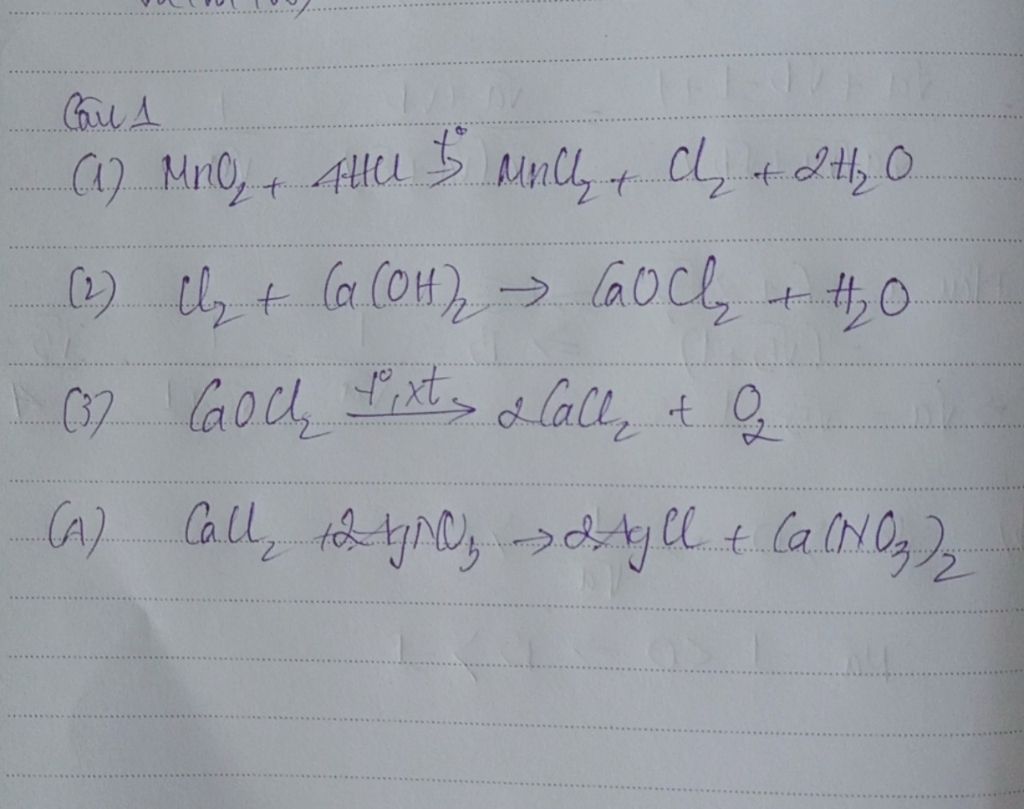 Câu 1
(1) MnO₂ + 4HCl t°→ MnCl₂ + Cl₂ + 2H₂O
(2) Cl₂ + Ca(OH)₂ → CaOCl₂ + H₂O
(3) CaOCl₂ t°, xt→ 2CaCl₂ + O₂
(4) CaCl₂ + 2AgNO₃ → 2AgCl + Ca(NO₃)₂